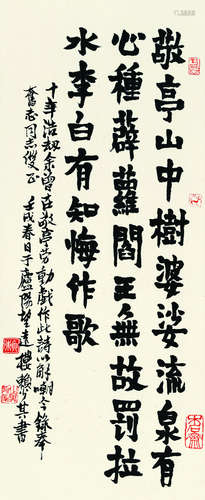 敬亭山中樹婆娑流泉有
心種薜蘿閻王無故罰拉
水李白有知悔作歌
十年浩劫余曾在敬亭勞動戲作此詩以解嘲今錄奉
奮志同志雙正
壬戌春日于廬陽望遠樓
其書